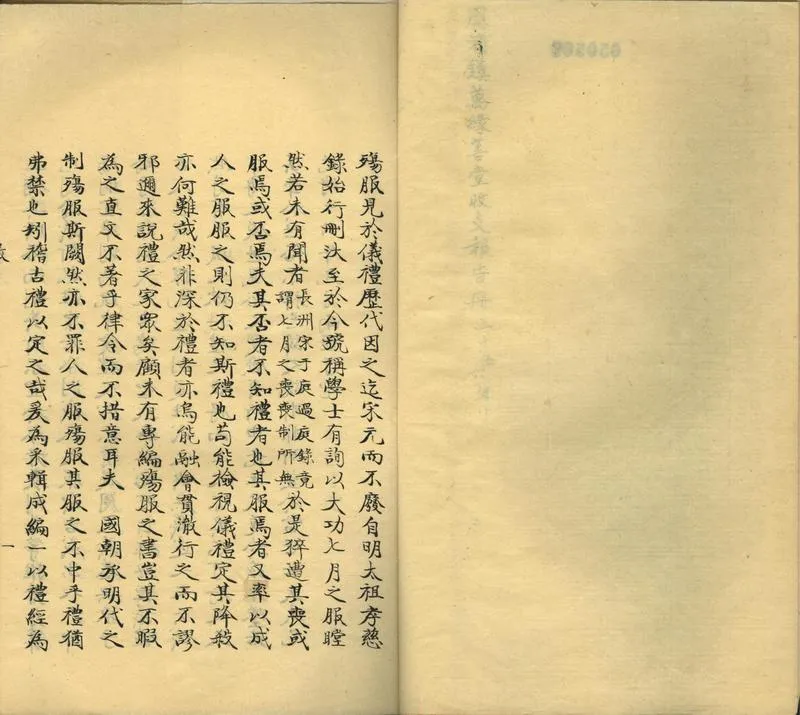 鎮萬緣善堂收支報告冊
殤服見於儀禮歷代因之迄宋元而不廢自明太祖孝慈
錄始行刪汰至於今號稱學士有詢以大功七月之服瞠
然若未有聞者長洲宋于庭過庭錄竟謂七月之喪喪制所無於是猝遭其喪或
服焉或否焉夫其否者不知禮者也其服焉者又率以成
人之服服之則仍不知斯禮也苟能檢視儀禮定其降殺
亦何難哉然非深於禮者亦烏能融會貫澈行之而不謬
邪邇來說禮之家眾矣顧未有專編殤服之書豈其不暇
為之直文不著乎律令而不措意耳夫 國朝承明代之
制殤服斯闕然亦不罪人之服殤服其服之不中乎禮猶
弗禁也矧稽古禮以定之哉爰為采輯成編一以禮經為
一